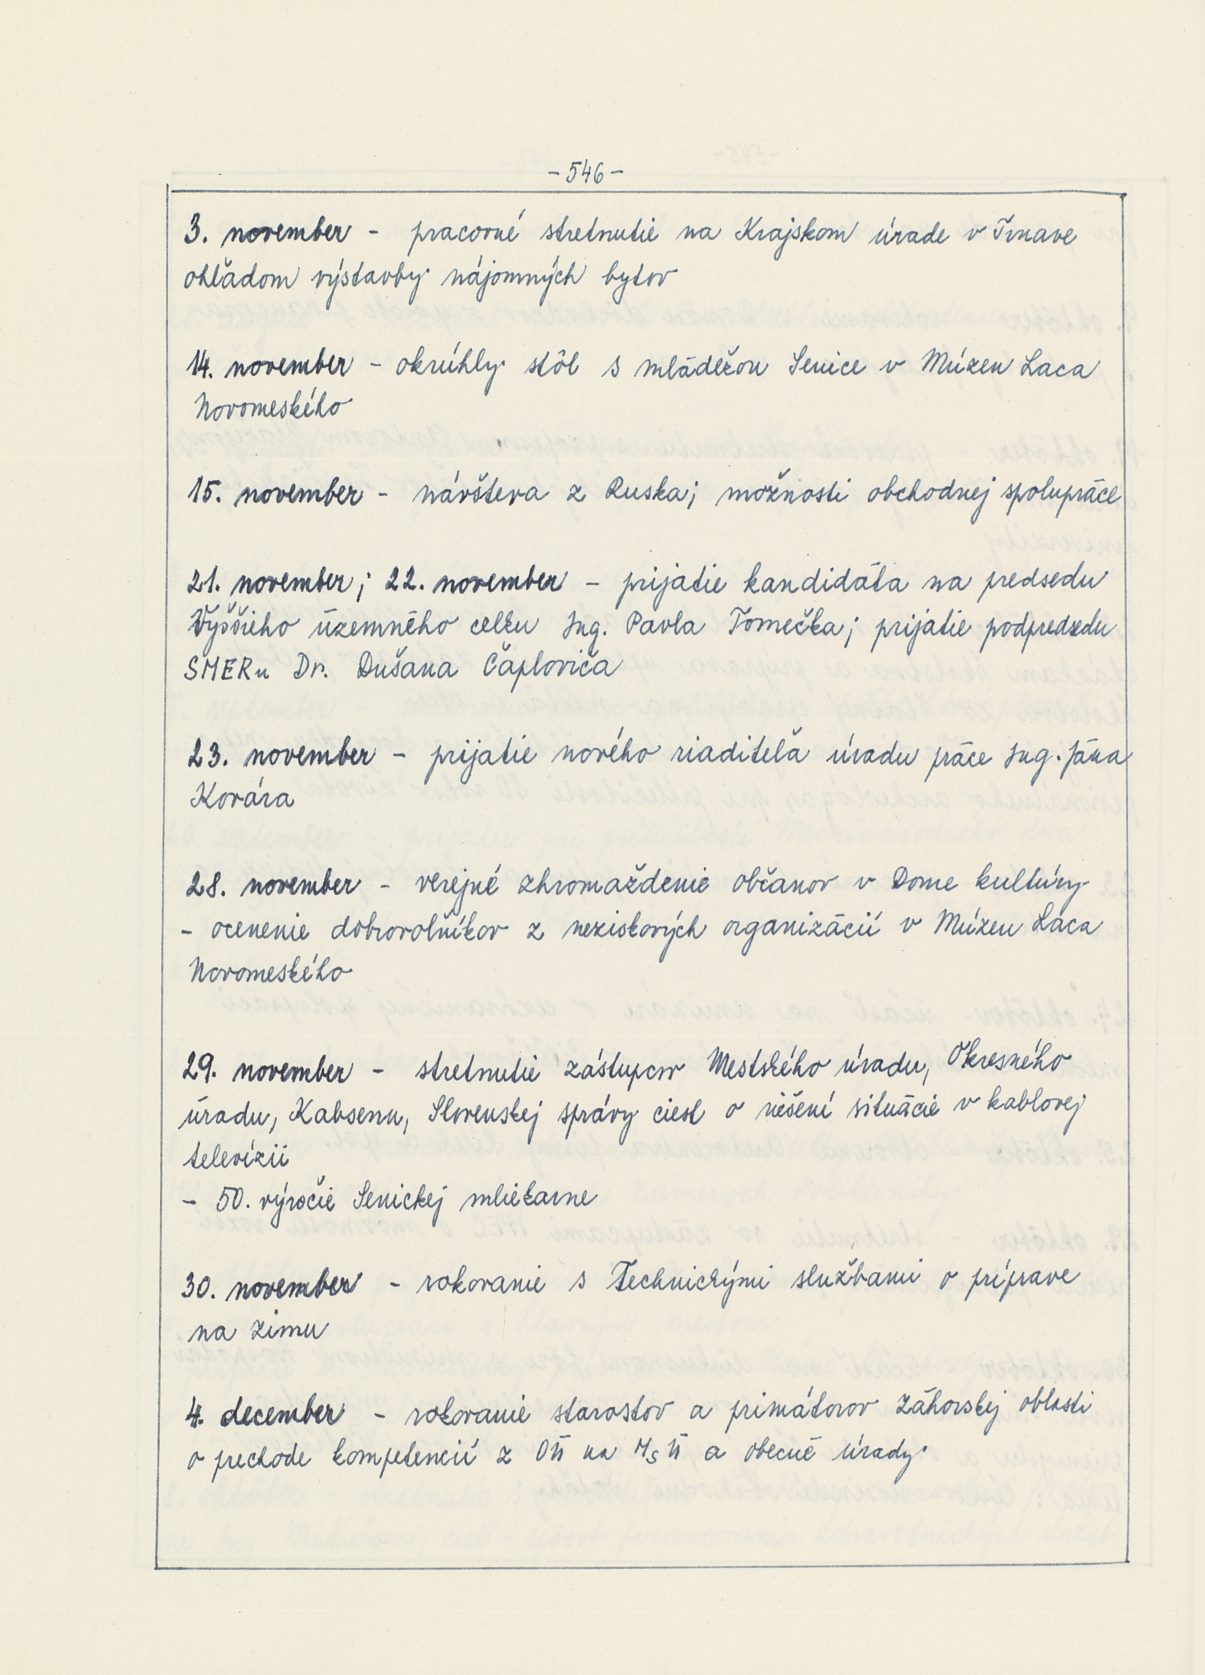 - 546 -
3. november - pracovné stretnutie na Krajskom úrade v Trnave
ohľadom výstavby nájomných bytov
14. november - okrúhly stôl s mládežou Senice v Múzeu Laca
Novomeského
15. november - návšteva z Ruska; možnosti obchodnej spolupráce
21. november; 22. november - prijatie kandidáta na predsedu
Vyššieho územného celku Ing. Pavla Tomečka; prijatie podpredsedu
SMERu Dr. Dušana Čaploviča
23. november - prijatie nového riaditeľa úradu práce Ing. Jána
Kovára
28. november - verejné zhromaždenie občanov v Dome kultúry
- ocenenie dobrovoľníkov z neziskových organizácií v Múzeu Laca
Novomeského
29. november - stretnutie zástupcov Mestského úradu, Okresného
úradu, Kabsenu, Slovenskej správy ciest o riešení situácie v kablovej
televízii
- 50. výročie Senickej mliekarne
30. november - rokovanie s Technickými službami o príprave
na zimu
4. december - rokovanie starostov a primátorov Záhorskej oblasti
o prechode kompetencií z OÚ na MsÚ a obecné úrady.